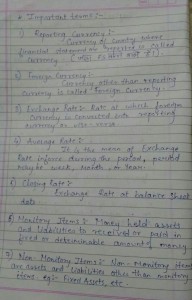 * Important terms :-
1) Reporting Currency :-
Currency of Country where
financial statement are reported is called
Currency.
2) Foreign Currency :-
Currency other than reporting
currency is called Foreign Currency.
3) Exchange Rate :- Rate at which foreign
Currency is converted into reporting
currency or vice-versa
4) Average Rate :-
It is the mean of Exchange
Rate inforce during the period, period
may be week, month, or year.
5) Closing Rate :-
Exchange Rate at balance sheet
date.
6) Monitory Items :- Money held assets
and liabilities to received or paid in
fixed or determinable amount of money.
7) Non-Monitory Items :- Non-Monitory items
are assets and liabilities other than monitory
items. eg:- Fixed Assets, etc.